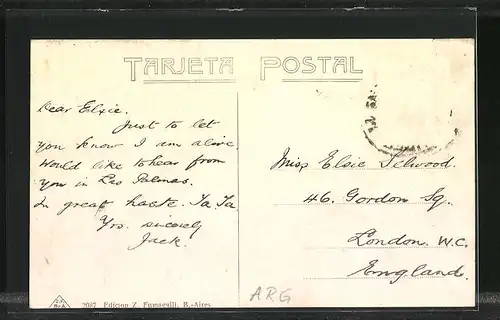 TARJETA POSTAL
Dear Elsie.
Just to let
you know I am alive.
Would like to hear from
you in Las Palmas.
In great haste. Ta. Ta.
Yrs. sincerely
Jack.
Miss Elsie
46. Gordon Sq.
London. W.C.
England.
ARG
2087 Edicion Z. Fumagalli, B.-Aires